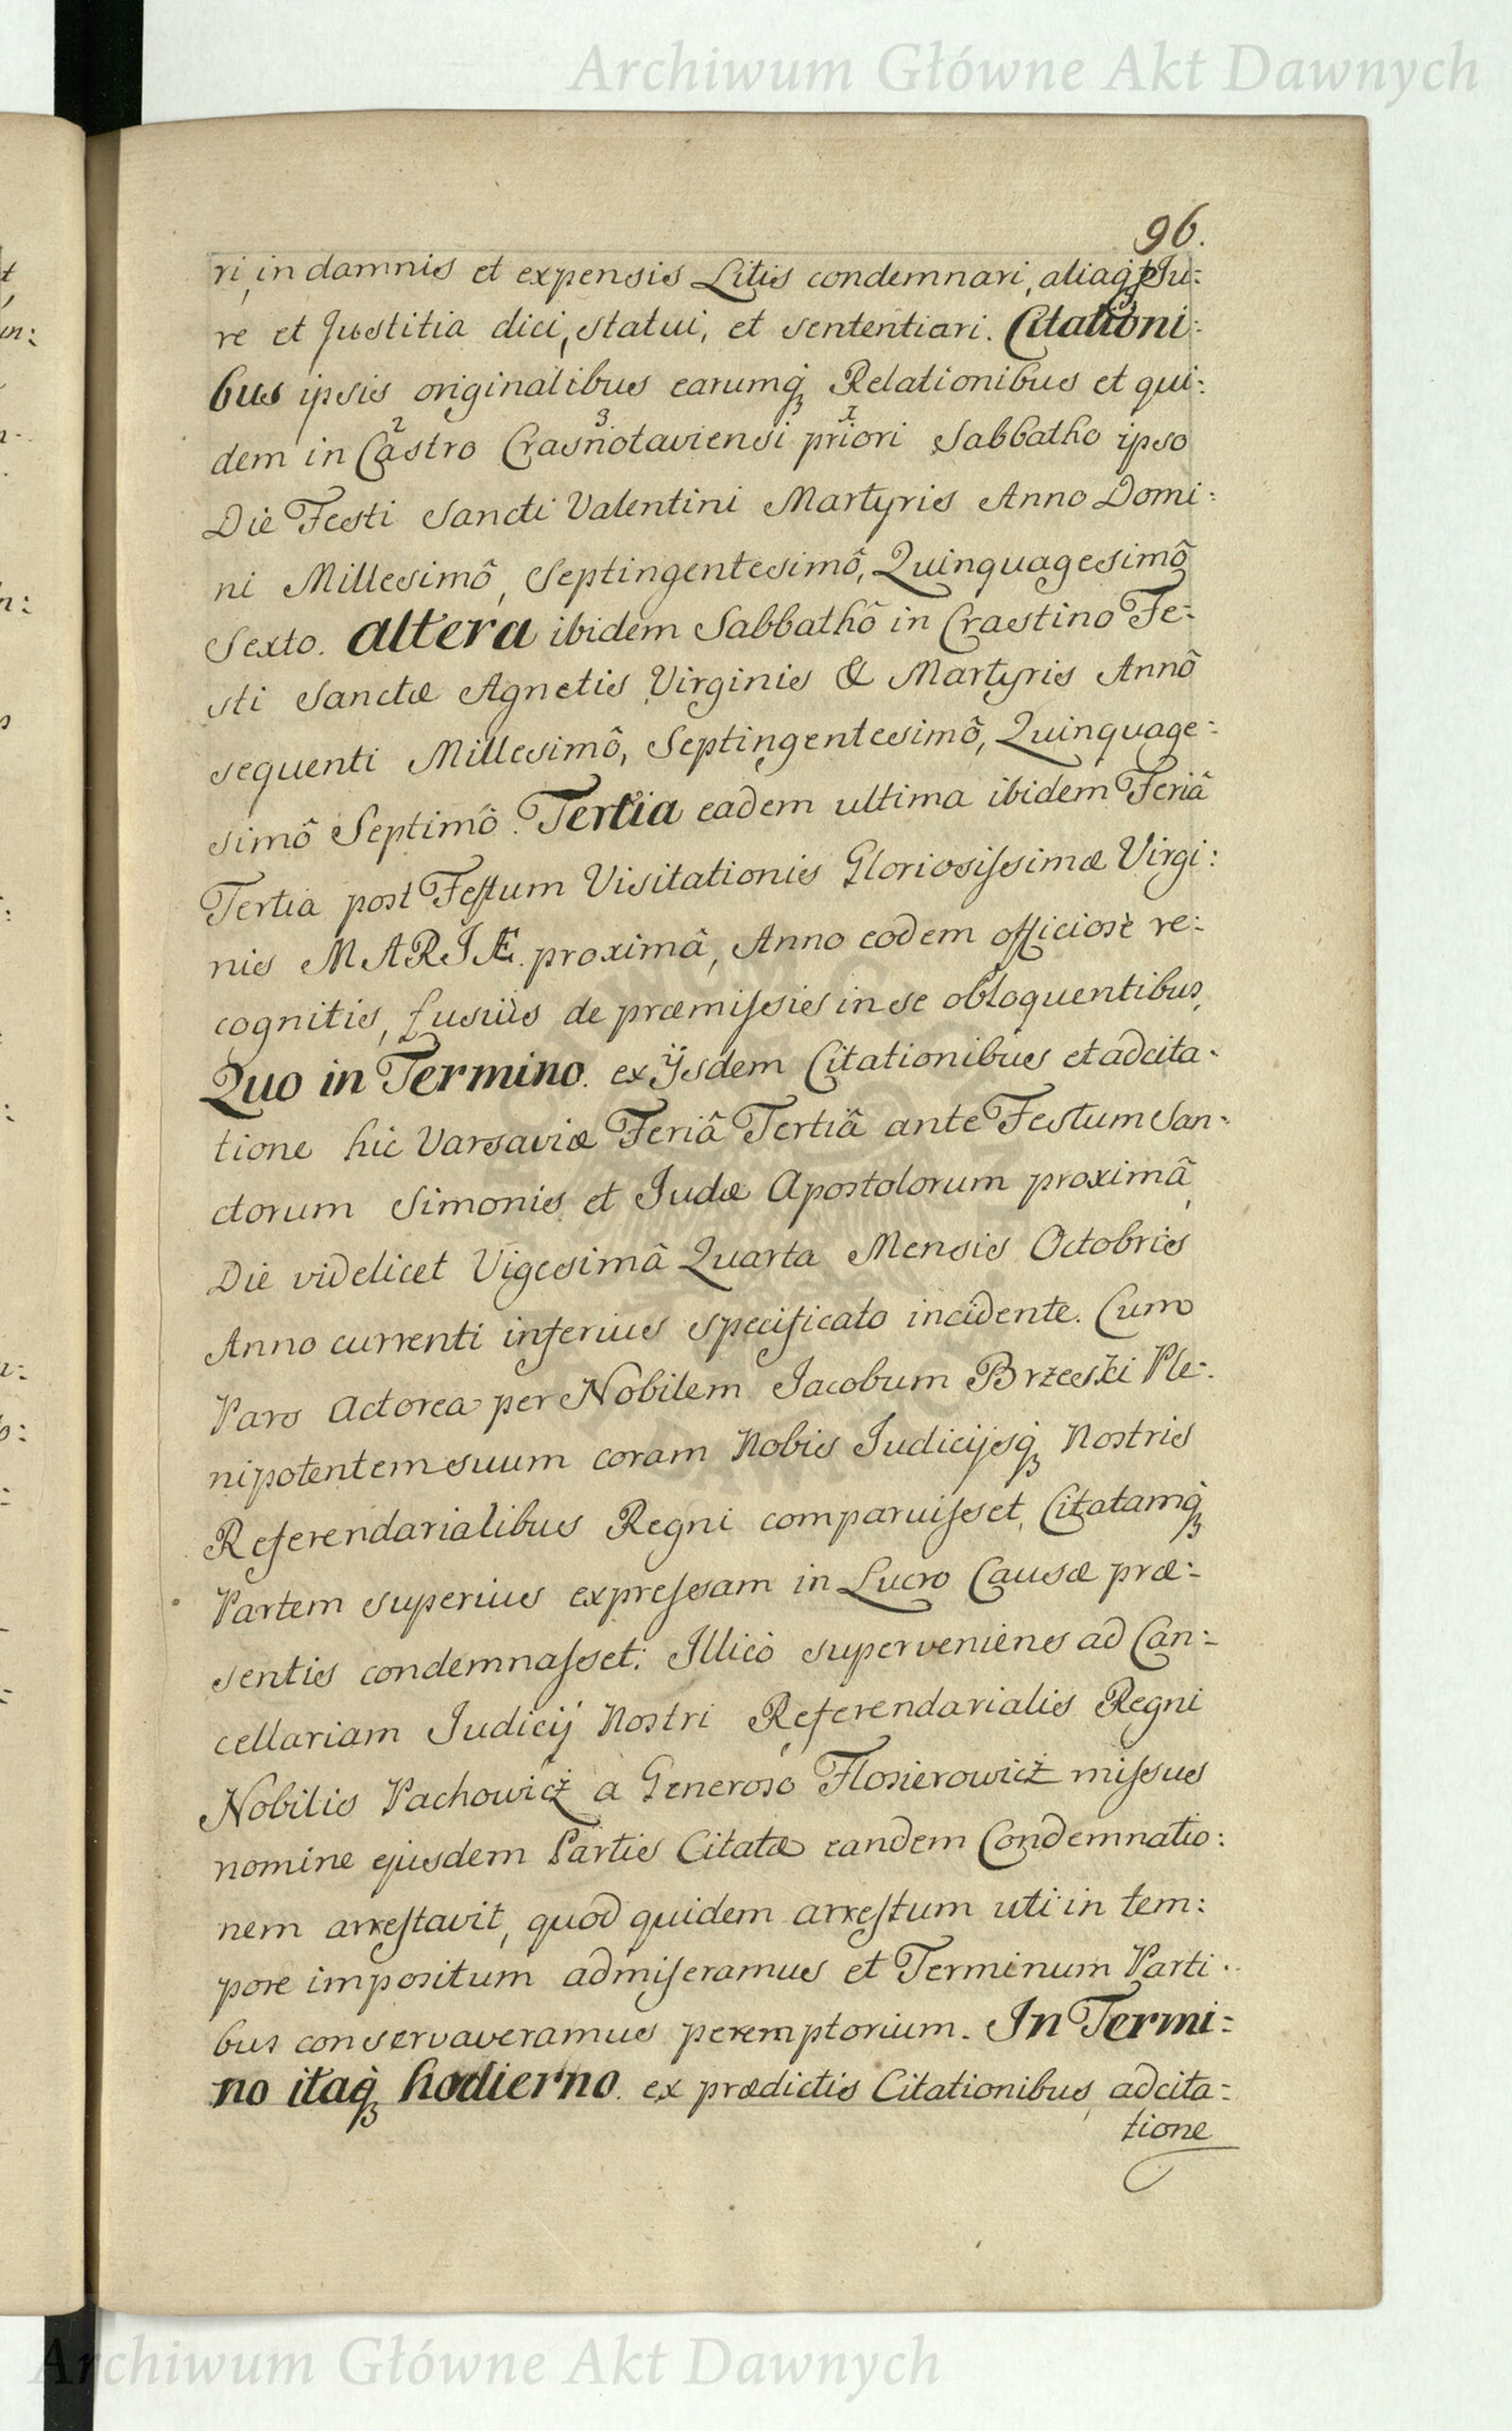 Archiwum Główne Akt Dawnych
96.
ri, in damnis et expensis Litis condemnari, aliaq́ꝫ Ju:
re et Justitia dici, statui, et sententiari. Citationi:
bus ipsis originalibus earumq́ꝫ Relationibus et qui:
2 3 1
dem in Castro Crasnotaviensi priori Sabbatho ipso
Die Festi Sancti Valentini Martyris Anno Domi:
ni Millesimô, Septingentesimô, Quinquagesimô
Sexto. altera ibidem Sabbathô in Crastino Fe:
sti Sanctæ Agnetis Virginis & Martyris Annô
sequenti Millesimô, Septingentesimô, Quinquage:
simô Septimô. Tertia eadem ultima ibidem Feriâ
Tertia post Festum Visitationis Gloriosissimæ Virgi:
nis MARIÆ. proximâ, Anno eodem officiosè re:
cognitis, fusiùs de præmissis in se obloquentibus,
Quo in Termino. ex Ijsdem Citationibus et adcita:
tione hic Varsaviæ Feriâ Tertiâ ante Festum San:
ctorum Simonis et Judæ Apostolorum proximâ,
Die videlicet Vigesimâ Quarta Mensis Octobris
Anno currenti inferius specificato incidente. Cum
Pars Actorea per Nobilem Jacobum Brzeski Ple:
nipotentem suum coram Nobis Judicijsq́ꝫ Nostris
Referendarialibus Regni comparuisset, Citatamq́ꝫ
Partem superius expressam in Lucro Causæ præ:
sentis condemnasset: Illicò superveniens ad Can:
cellariam Judicij Nostri Referendarialis Regni
Nobilis Pachowicz à Generoso Flosierowicz missus
nomine ejusdem Partis Citatæ eandem Condemnatio:
nem arrestavit, quod quidem arrestum uti in tem:
pore impositum admiseramus et Terminum Parti:
bus conservaveramus peremptorium. In Termi:
no itaq́ꝫ hodierno. ex prædictis Citationibus, adcita:
tione
Archiwum Główne Akt Dawnych